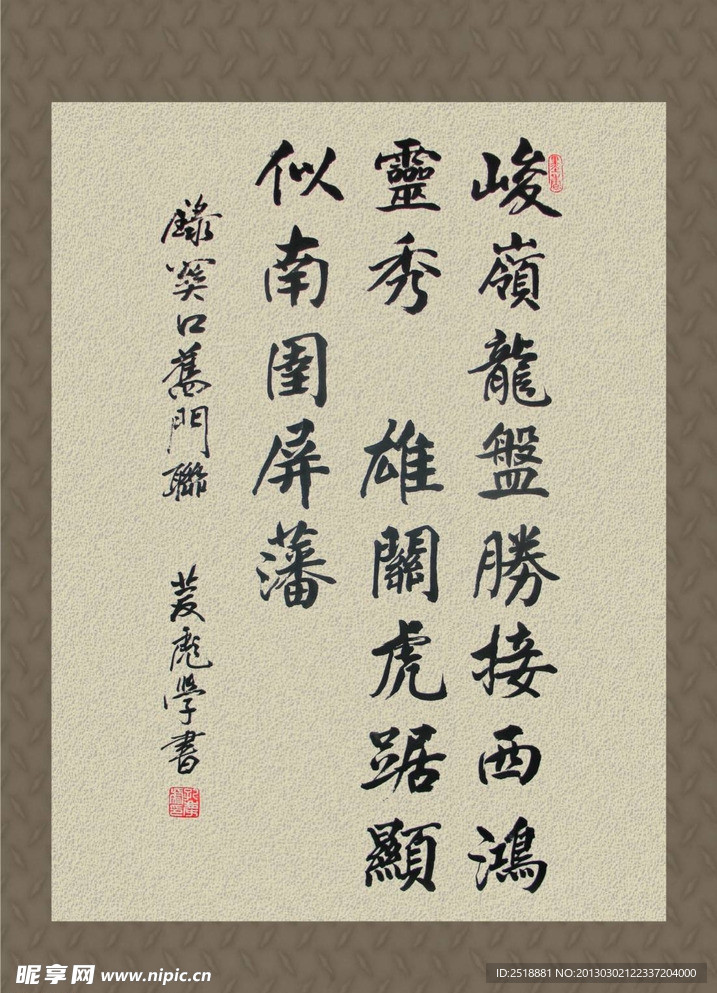 峻嶺龍盤勝接西鴻
靈秀 雄關虎踞顯
似南圉屏藩
錄窦口舊門聯 菱彪學書
昵享网 www.nipic.cn
ID:2518881 NO:20130302122337204000